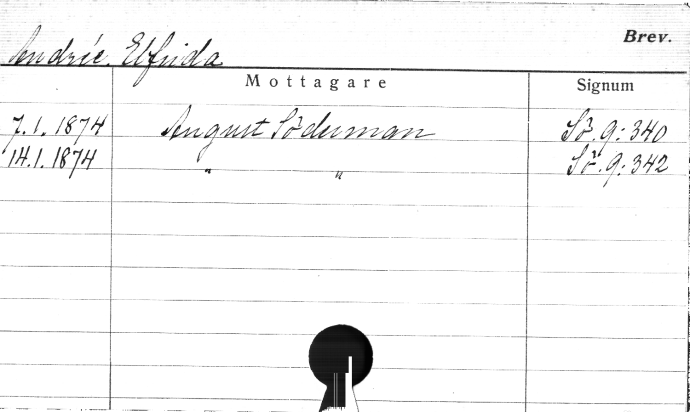 Brev.
Andrée. Elfrida
Mottagare Signum
7.1.1874 August Söderman Sö. 9:340
14.1.1874 " " Sö. 9:342